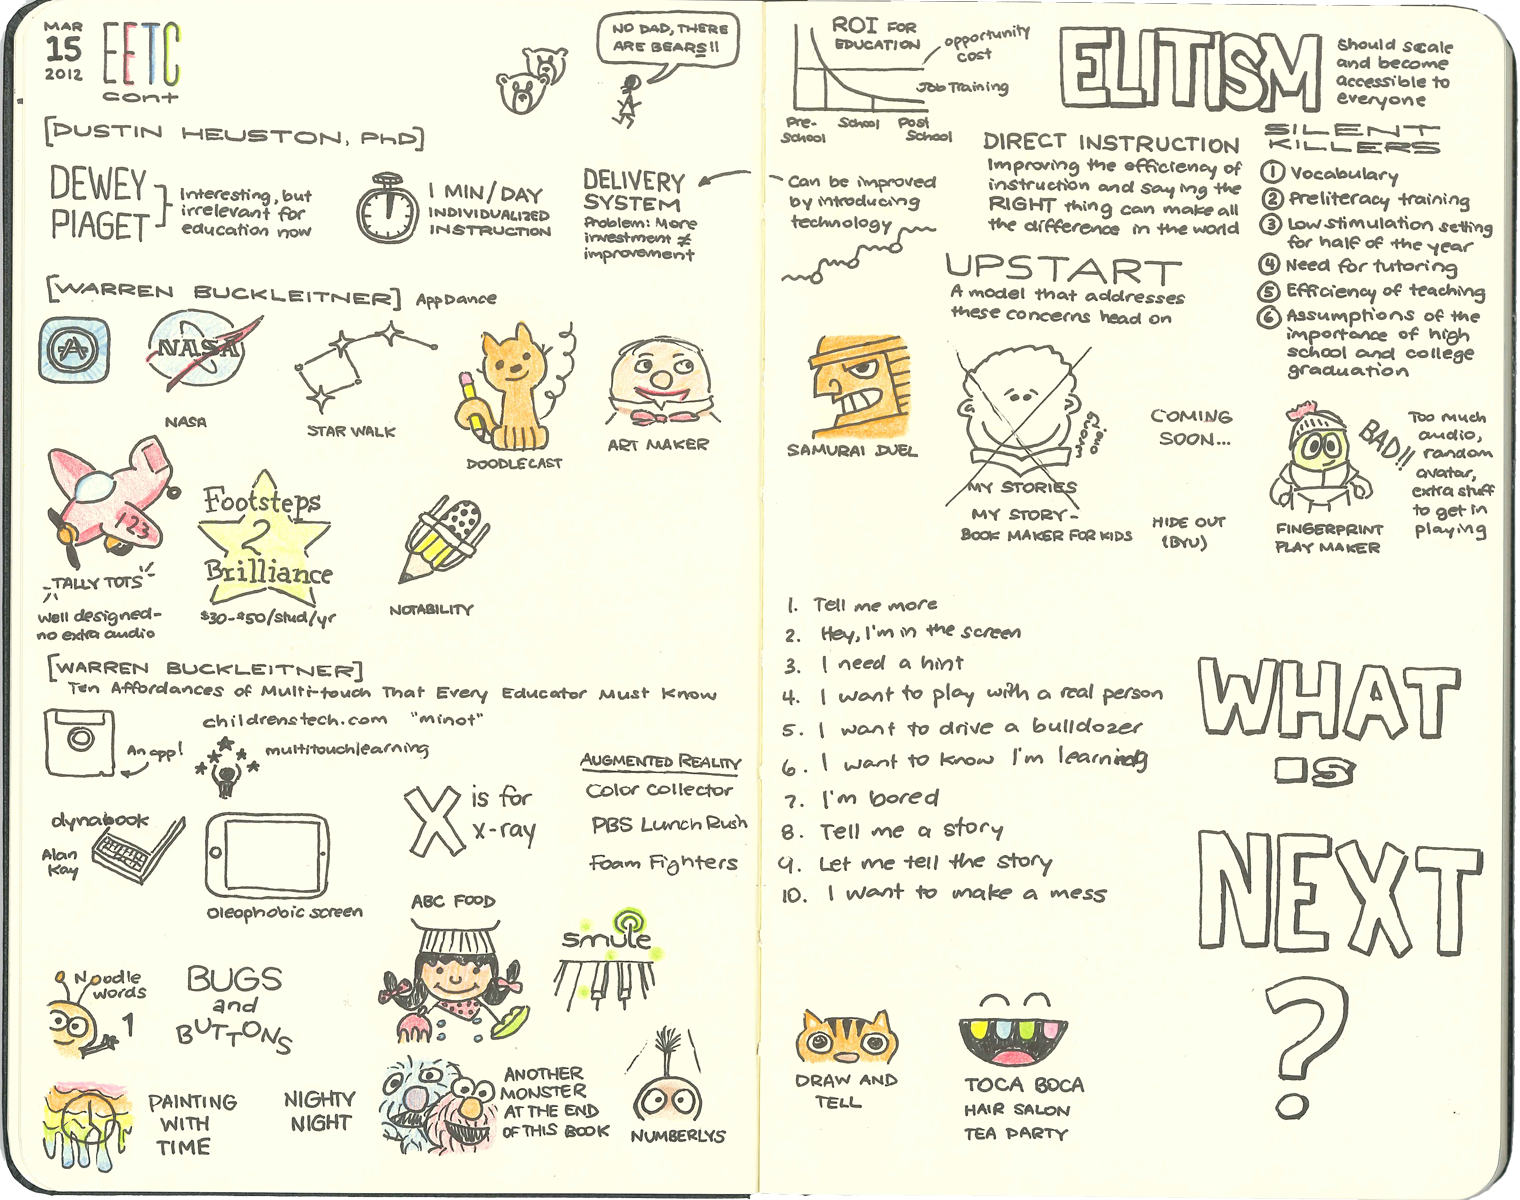 MAR
15
2012
EETC
cont
NO DAD, THERE
ARE BEARS!!
[DUSTIN HEUSTON, PhD]
DEWEY
PIAGET
Interesting, but
irrelevant for
education now
1 MIN/DAY
INDIVIDUALIZED
INSTRUCTION
DELIVERY
SYSTEM
Problem: More
investment ≠
improvement
[WARREN BUCKLEITNER] App Dance
NASA
NASA
STAR WALK
DOODLECAST
ART MAKER
123
TALLY TOTS
well designed-
no extra audio
Footsteps
2
Brilliance
$30-$50/stud/yr
NOTABILITY
[WARREN BUCKLEITNER]
Ten Affordances of Multi-touch That Every Educator Must Know
childrenstech.com "minot"
An app!
multitouchlearning
dynabook
Alan
Kay
Oleophobic screen
X is for
x-ray
AUGMENTED REALITY
Color Collector
PBS Lunch Rush
Foam Fighters
Noodle
words
1
BUGS
and
BUTTONS
ABC FOOD
smule
PAINTING
WITH
TIME
NIGHTY
NIGHT
ANOTHER
MONSTER
AT THE END
OF THIS BOOK
NUMBERLYS
ROI FOR
EDUCATION
opportunity
cost
Job Training
Pre-
School
School
Post
School
ELITISM
Should scale
and become
accessible to
everyone
Can be improved
by introducing
technology
DIRECT INSTRUCTION
Improving the efficiency of
instruction and saying the
RIGHT thing can make all
the difference in the world
SILENT
KILLERS
1 Vocabulary
2 Preliteracy training
3 Low stimulation setting
for half of the year
4 Need for tutoring
5 Efficiency of teaching
6 Assumptions of the
importance of high
school and college
graduation
UPSTART
A model that addresses
these concerns head on
SAMURAI DUEL
wrong
one!
MY STORIES
MY STORY-
BOOK MAKER FOR KIDS
COMING
SOON...
HIDE OUT
(BYU)
BAD!!
FINGERPRINT
PLAY MAKER
Too much
audio,
random
avatar,
extra stuff
to get in
playing
1. Tell me more
2. Hey, I'm in the screen
3. I need a hint
4. I want to play with a real person
5. I want to drive a bulldozer
6. I want to know I'm learning
7. I'm bored
8. Tell me a story
9. Let me tell the story
10. I want to make a mess
WHAT
IS
NEXT
?
DRAW AND
TELL
TOCA BOCA
HAIR SALON
TEA PARTY